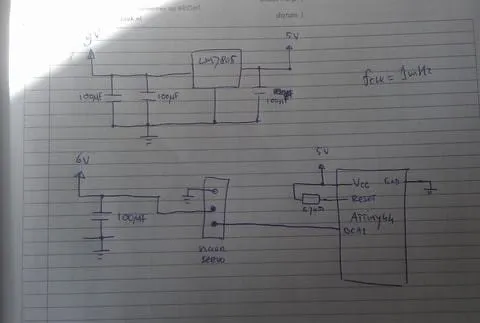 9V
5V
LM7805
100µF
100µF
100µF
fclk = 1MHz
6V
5V
100µF
Vcc
GND
Reset
ATtiny44
OC1A
servo